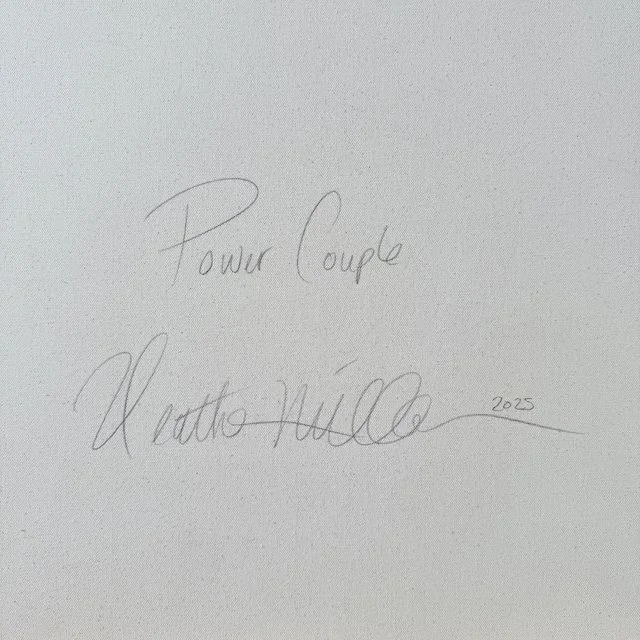 Power Couple
Heather Miller 2025